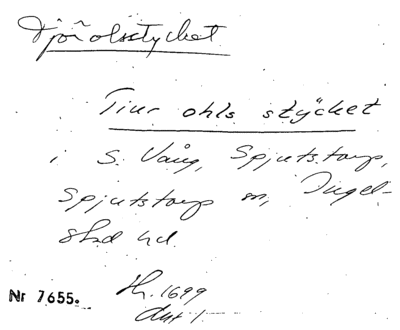 Tjörolsstycket
Tiur ohls stÿcket
i S. Vång, Spjutstorp,
Spjutstorp sn, Ingel-
stad hd.
Lh. 1699
Akt 1
Nr 7655.